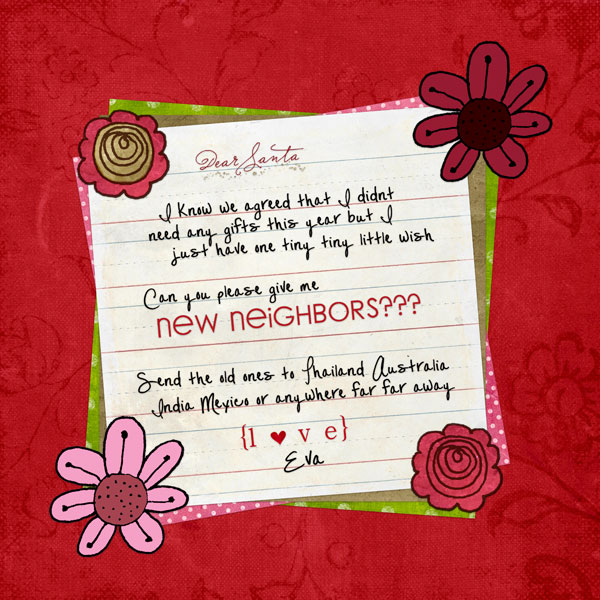 Dear Santa
I Know we agreed that I didnt
need any gifts this year but I
just have one tiny tiny little wish
Can you please give me
new neiGHBORS???
Send the old ones to Thailand Australia
India Mexico or anywhere far far away
{l ♥ v e}
Eva